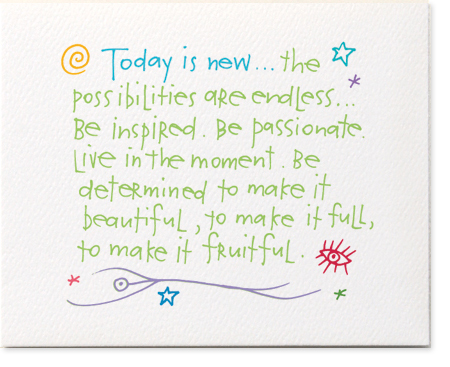 Today is new... the
possibilities are endless...
Be inspired. Be passionate.
Live in the moment. Be
determined to make it
beautiful, to make it full,
to make it fruitful.